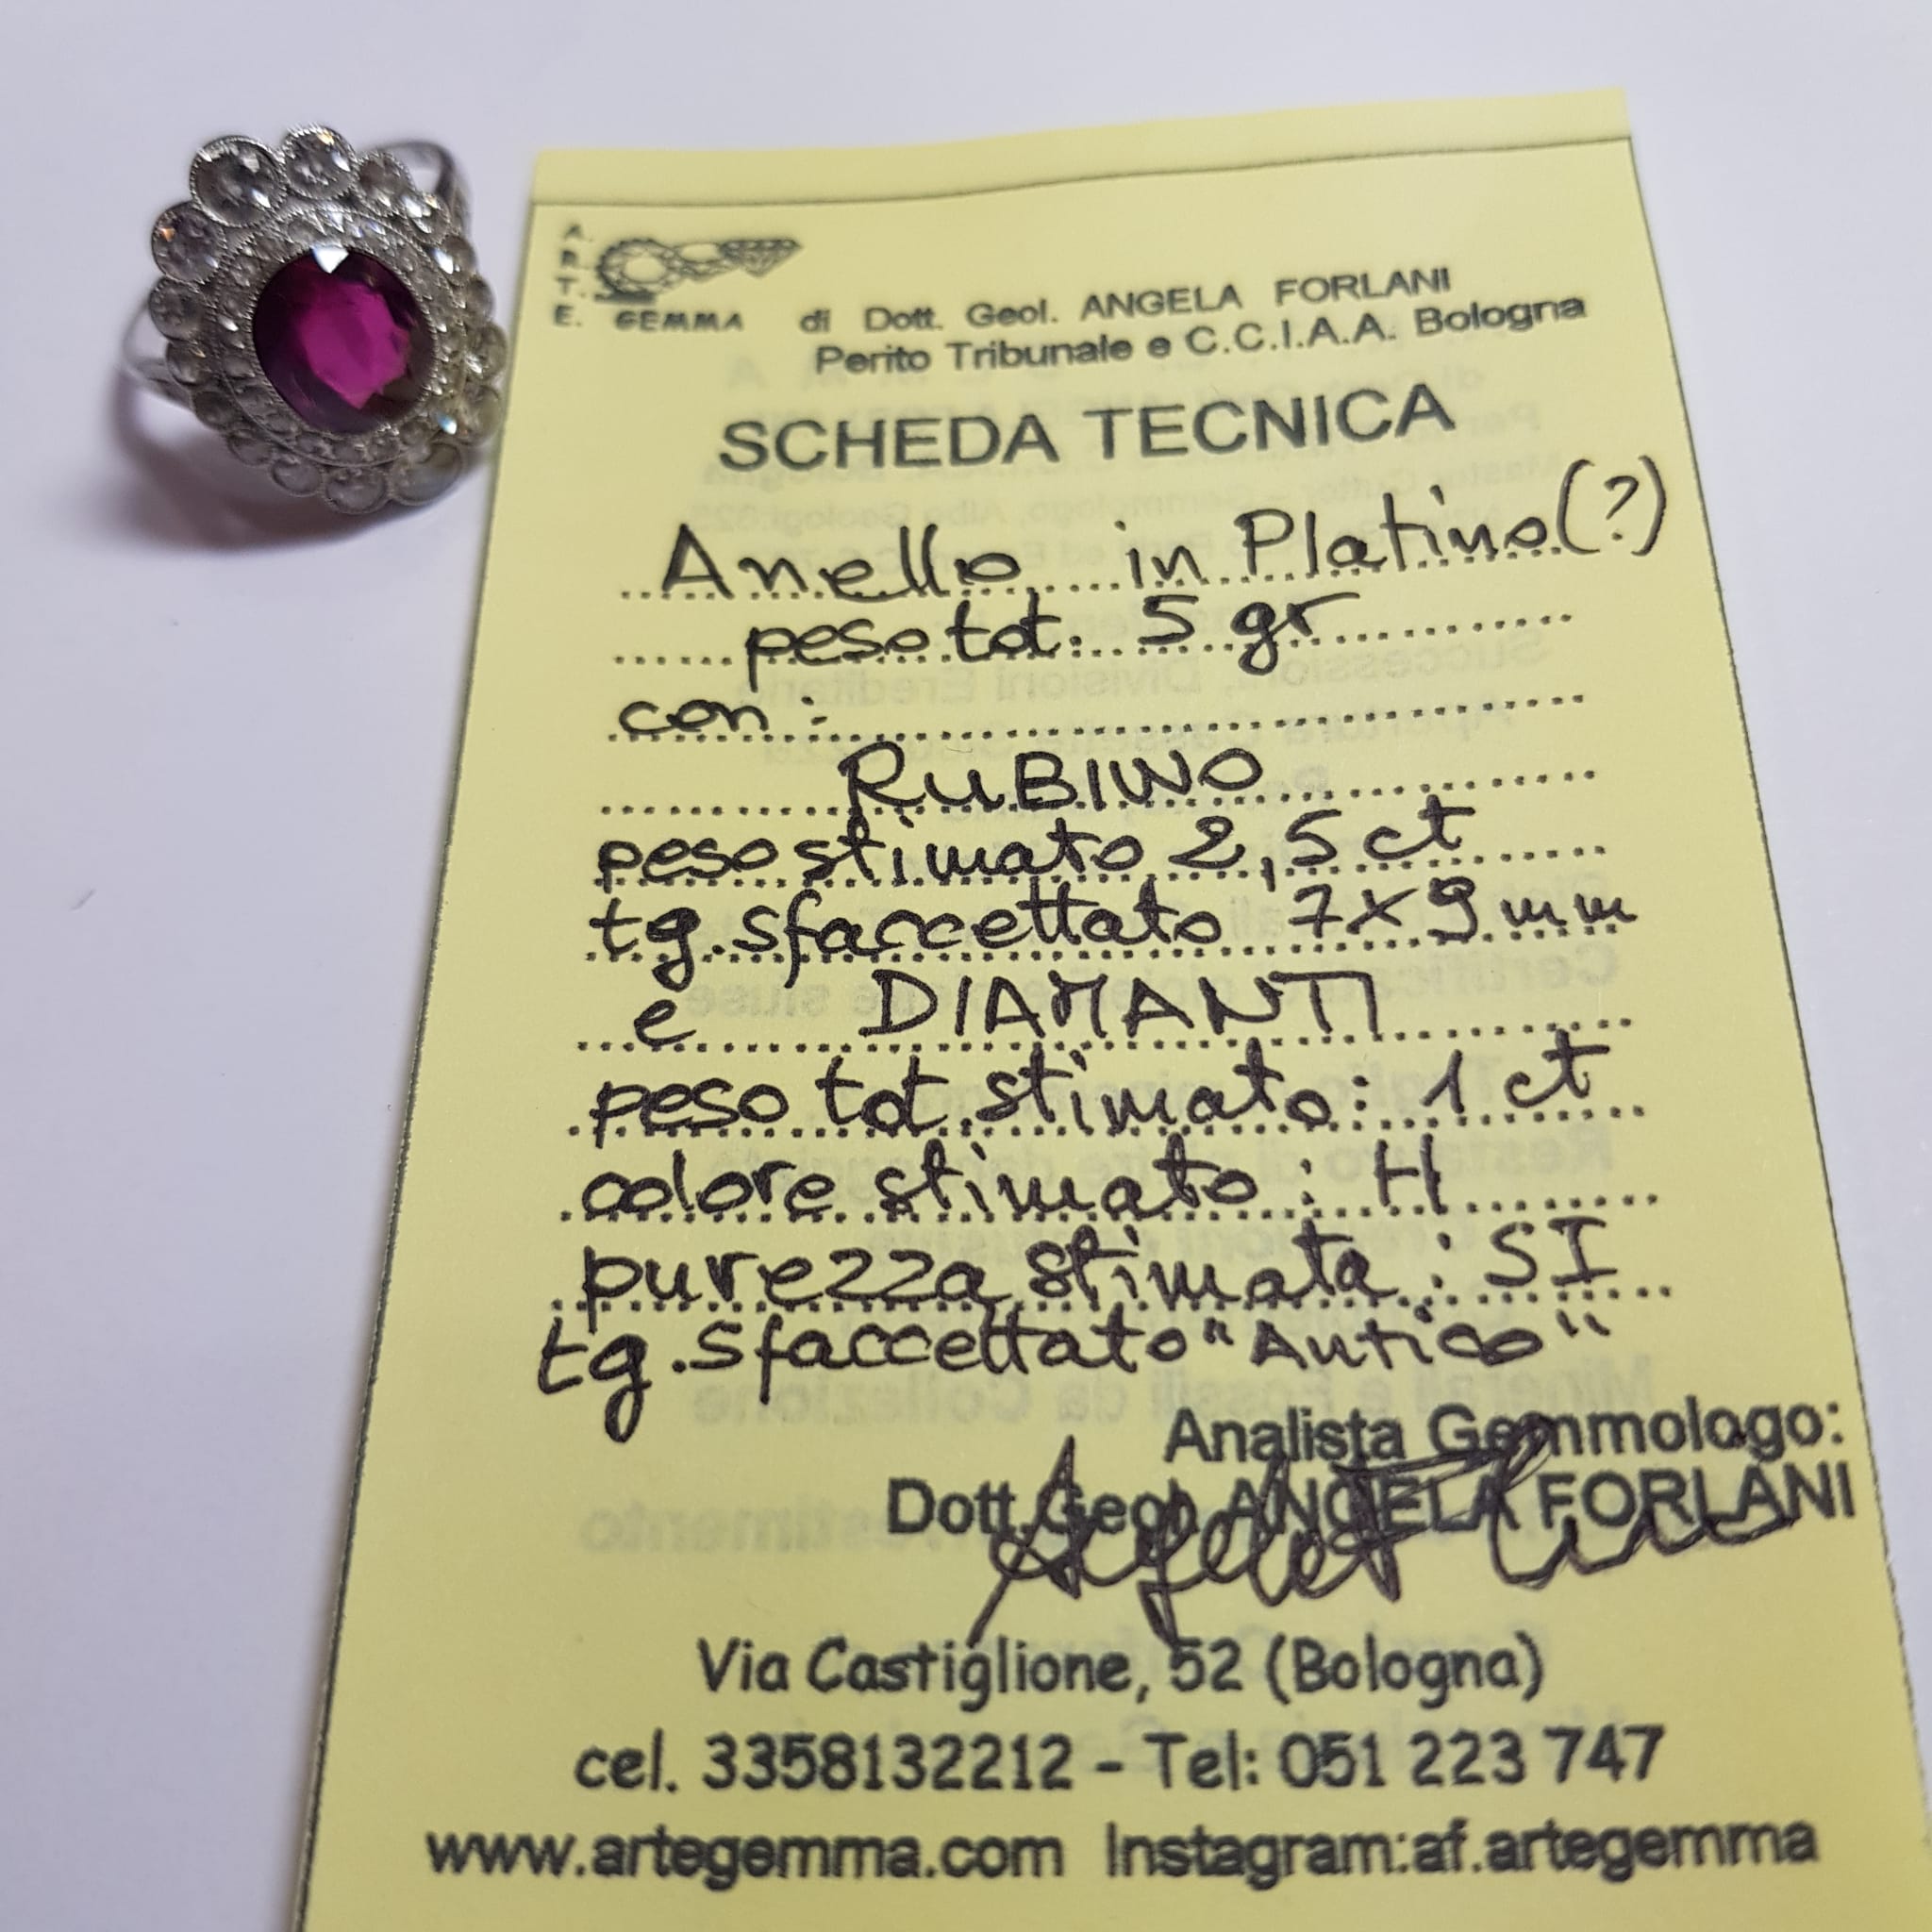 A.R.T.E. GEMMA di Dott. Geol. ANGELA FORLANI
Perito Tribunale e C.C.I.A.A. Bologna
SCHEDA TECNICA
Anello in Platino (?)
peso tot. 5 gr
con:
RUBINO
peso stimato 2,5 ct
tg. sfaccettato 7x9 mm
e DIAMANTI
peso tot. stimato: 1 ct
colore stimato: H
purezza stimata: SI
tg. sfaccettato "Antico"
Analista Gemmologo:
Dott. Geol. ANGELA FORLANI
Via Castiglione, 52 (Bologna)
cel. 3358132212 - Tel: 051 223 747
www.artegemma.com Instagram:af.artegemma